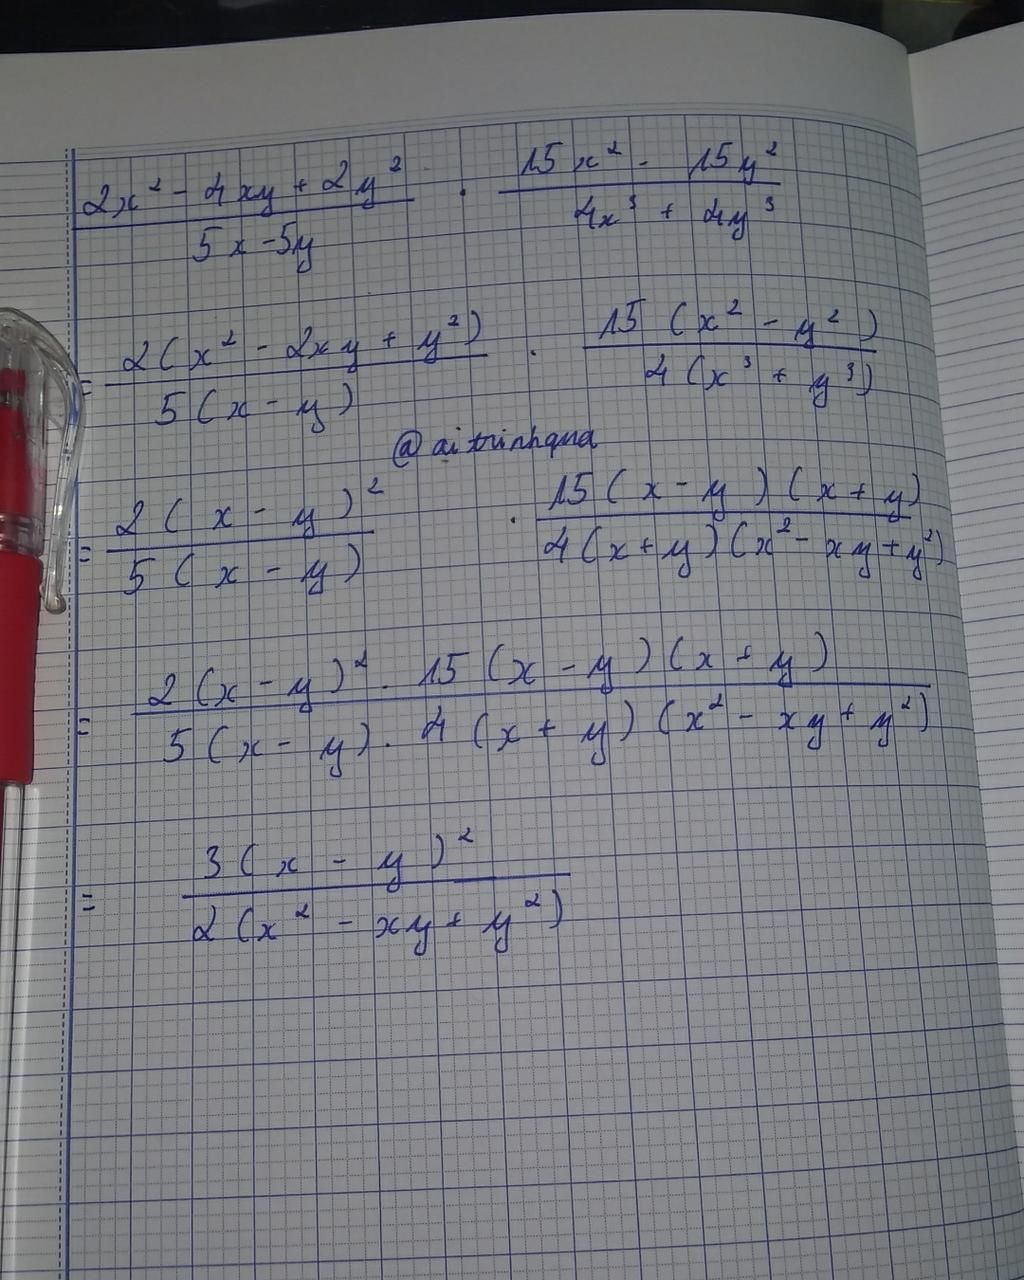 2x² - 4xy + 2y² . 15x² - 15y²
5x - 5y 4x³ + 4y³
= 2(x² - 2xy + y²) . 15(x² - y²)
5(x - y) 4(x³ + y³)
@aitrinhqna
= 2(x - y)² . 15(x - y)(x + y)
5(x - y) 4(x + y)(x² - xy + y²)
= 2(x - y)² . 15(x - y)(x + y)
5(x - y) . 4(x + y)(x² - xy + y²)
= 3(x - y)²
2(x² - xy + y²)